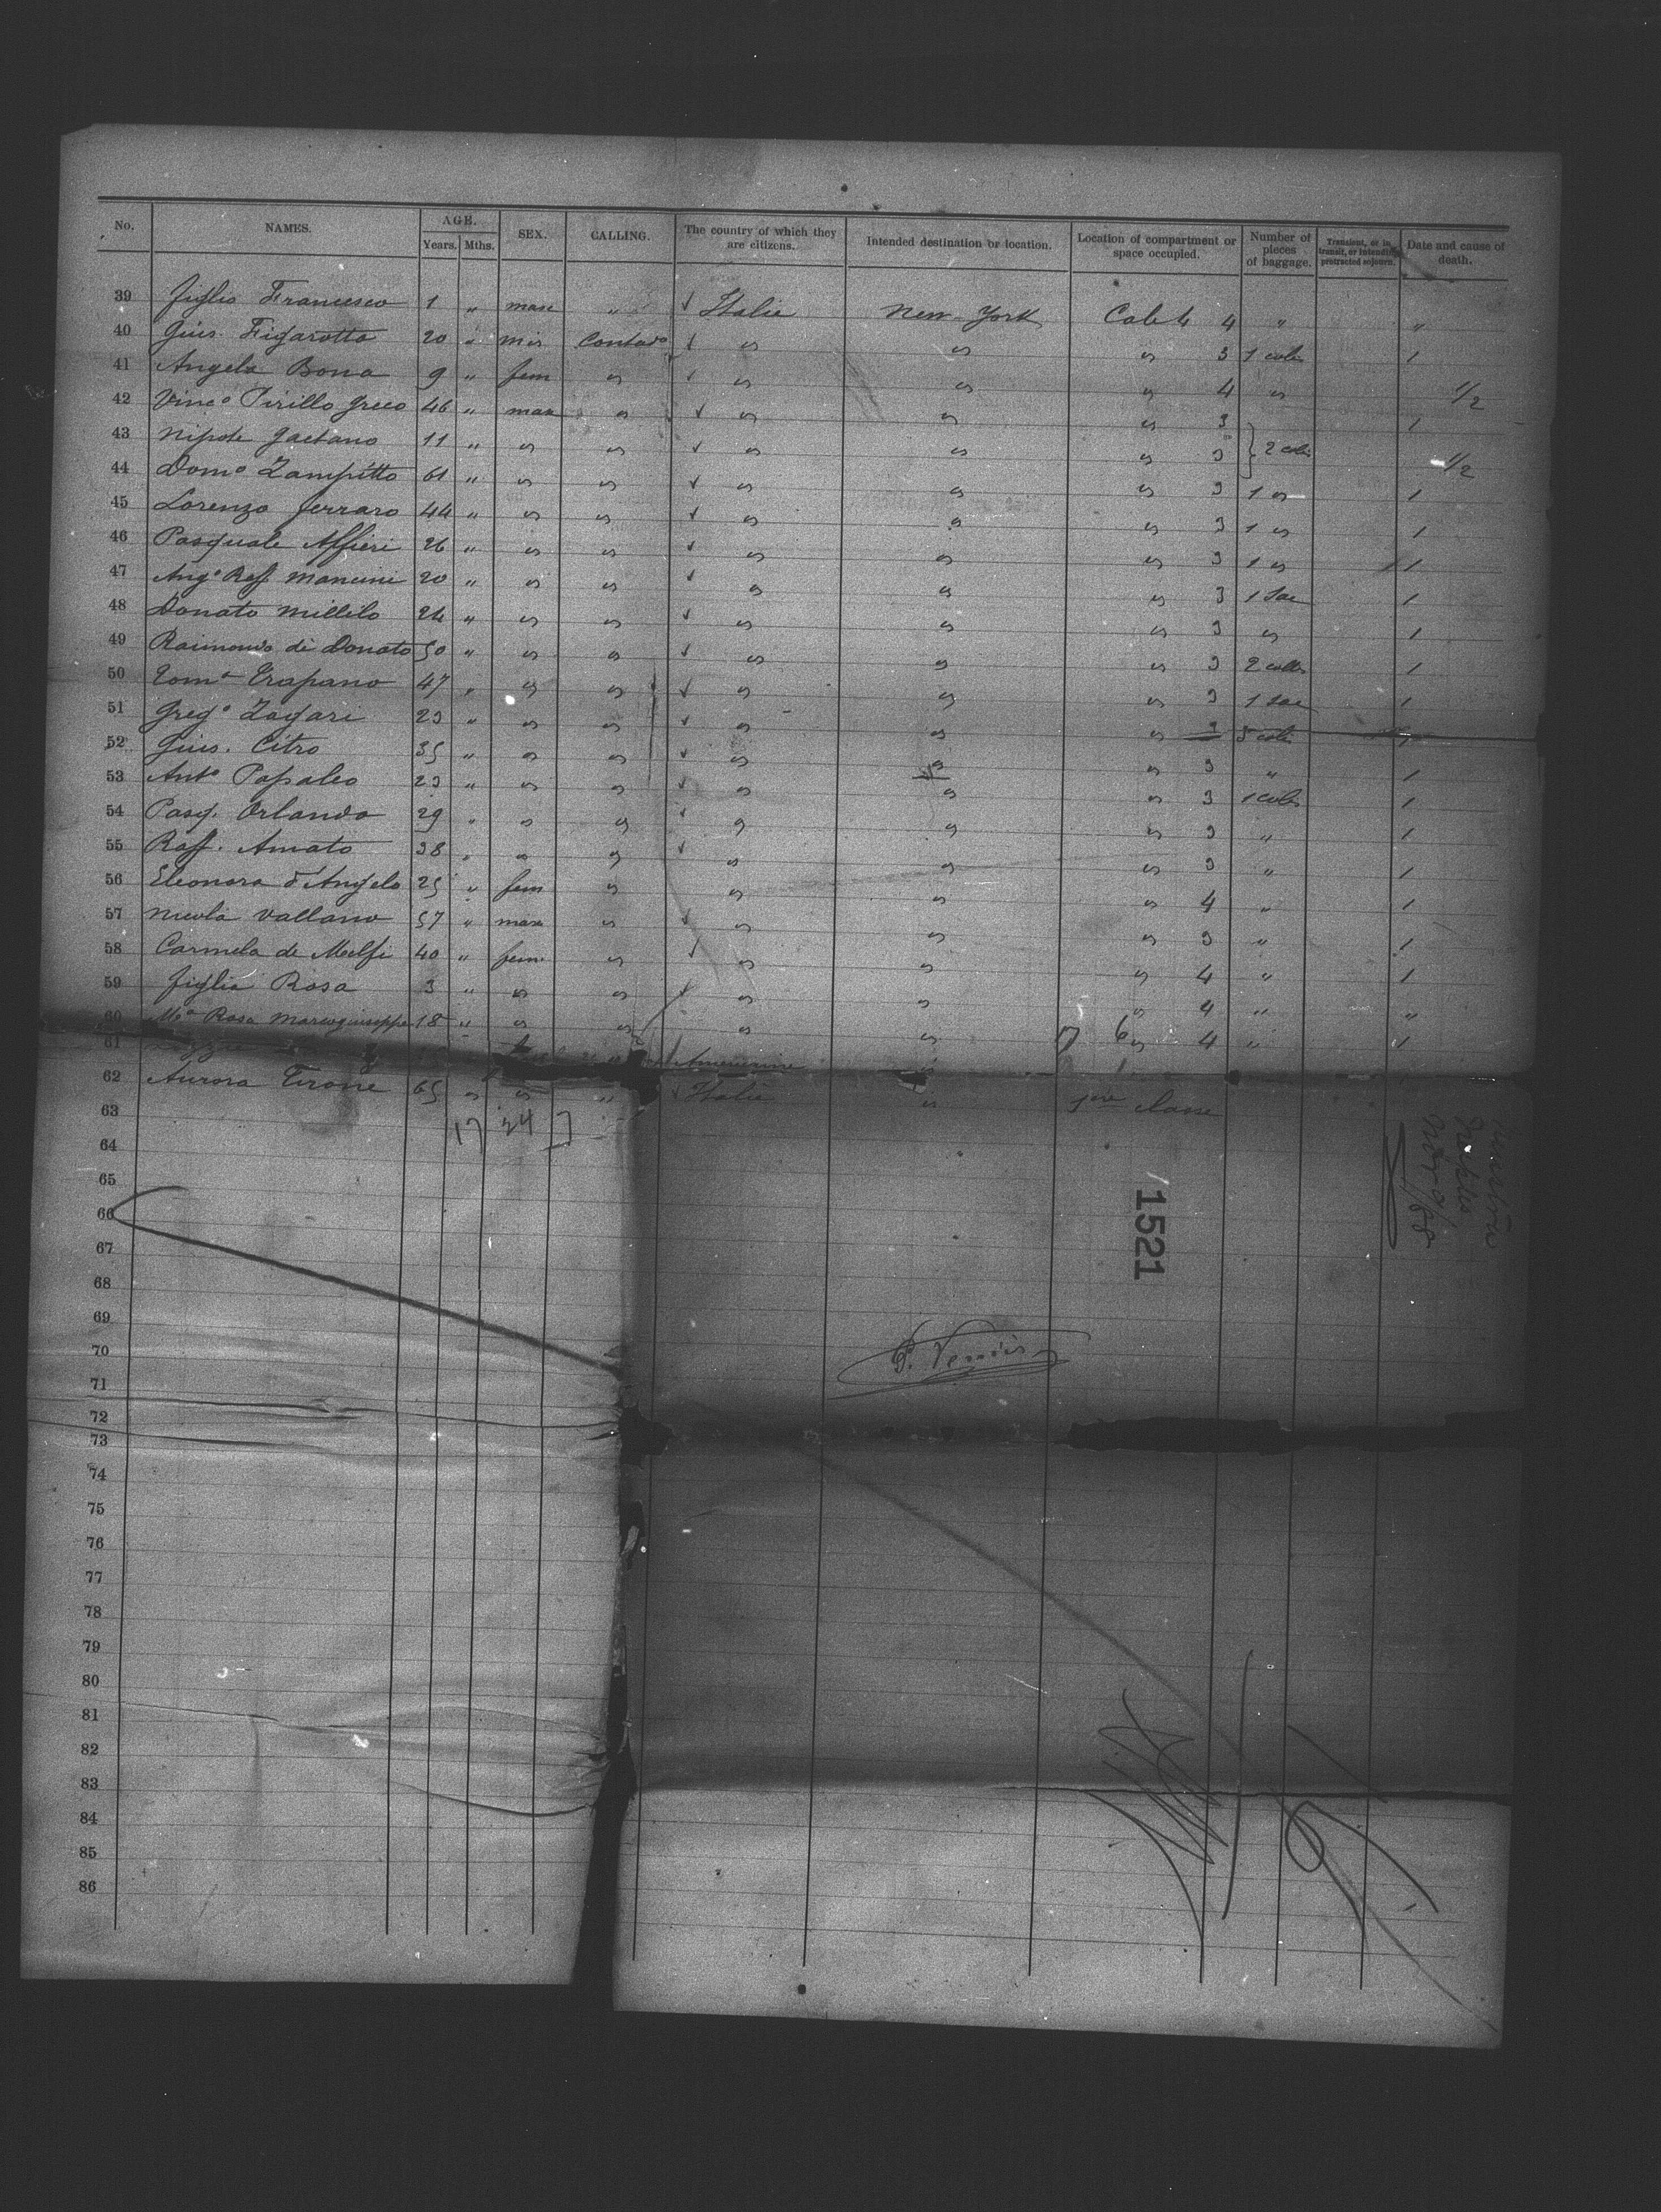 No. NAMES. AGE. Years. Mths. SEX. CALLING. The country of which they are citizens. Intended destination or location. Location of compartment or space occupied. Number of pieces of baggage. Transient, or in transit, or intending protracted sojourn. Date and cause of death.
39 figlio Francesco 1 " masc " ✓ Italie New-York Cale 4 4 " "
40 Gius. Figarotta 20 " Contad° ✓ " " " 3 1 colis 1
41 Angela Bona 9 " fem " ✓ " " " 4 " 1/2
42 Vinc° Pirillo Greco 46 " masc " ✓ " " " 3 1
43 Nipote Gaetano 11 " " " ✓ " " " 3 } 2 colis 1/2
44 Dom° Zampitto 61 " " " ✓ " " " 3 1 " 1
45 Lorenzo ferraro 44 " " " ✓ " " " 3 1 " 1
46 Pasquale Alfieri 26 " " " ✓ " " " 3 1 " 1
47 Ang° Raff. Mancini 20 " " " ✓ " " " 3 1 Sac 1
48 Donato Millilo 24 " " " ✓ " " " 3 " 1
49 Raimondo di Donato 50 " " " ✓ " " " 3 2 colis 1
50 Tom° Trapano 47 " " " ✓ " " " 3 1 sac 1
51 Greg° Zagari 23 " " " ✓ " " " 3 5 colis
52 Gius. Citro 35 " " " ✓ " " " 3 " 1
53 Ant° Papaleo 23 " " " ✓ " " " 3 1 colis 1
54 Pasq. Orlando 29 " " " ✓ " " " 3 " 1
55 Raff. Amato 38 " " " ✓ " " " 3 " 1
56 Eleonora d'Angelo 25 " fem " " " " 4 " 1
57 Nicola Vallano 57 " masc " ✓ " " " 3 " 1
58 Carmela de Melfi 40 " fem. " ✓ " " " 4 " 1
59 figlia Rosa 3 " " " ✓ " " " 4 " "
60 Mª Rosa Marcogiuseppe 18 " " " " " " 4 " 1
61
62 Aurora Tirone 65 " " " ✓ Italie " 1ère classe
63
17 24
64
65
66
67
68
69
70
71
72
73
74
75
76
77
78
79
80
81
82
83
84
85
86
1521